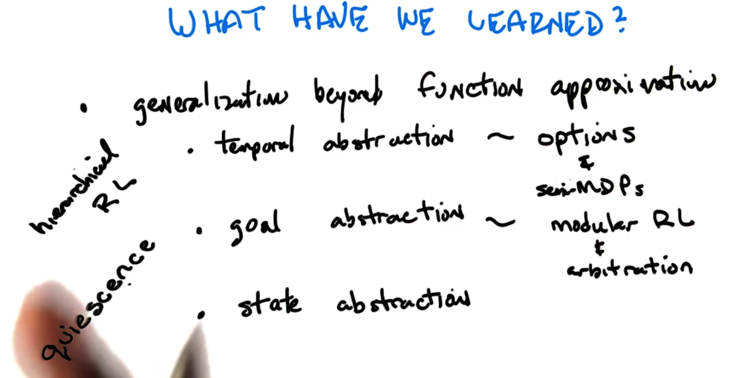 WHAT HAVE WE LEARNED?
• generalization beyond function approximation
• temporal abstraction ~ options
&
semi-MDPs
hierarchical
RL
• goal abstraction ~ modular RL
&
arbitration
quiescence
• state abstraction